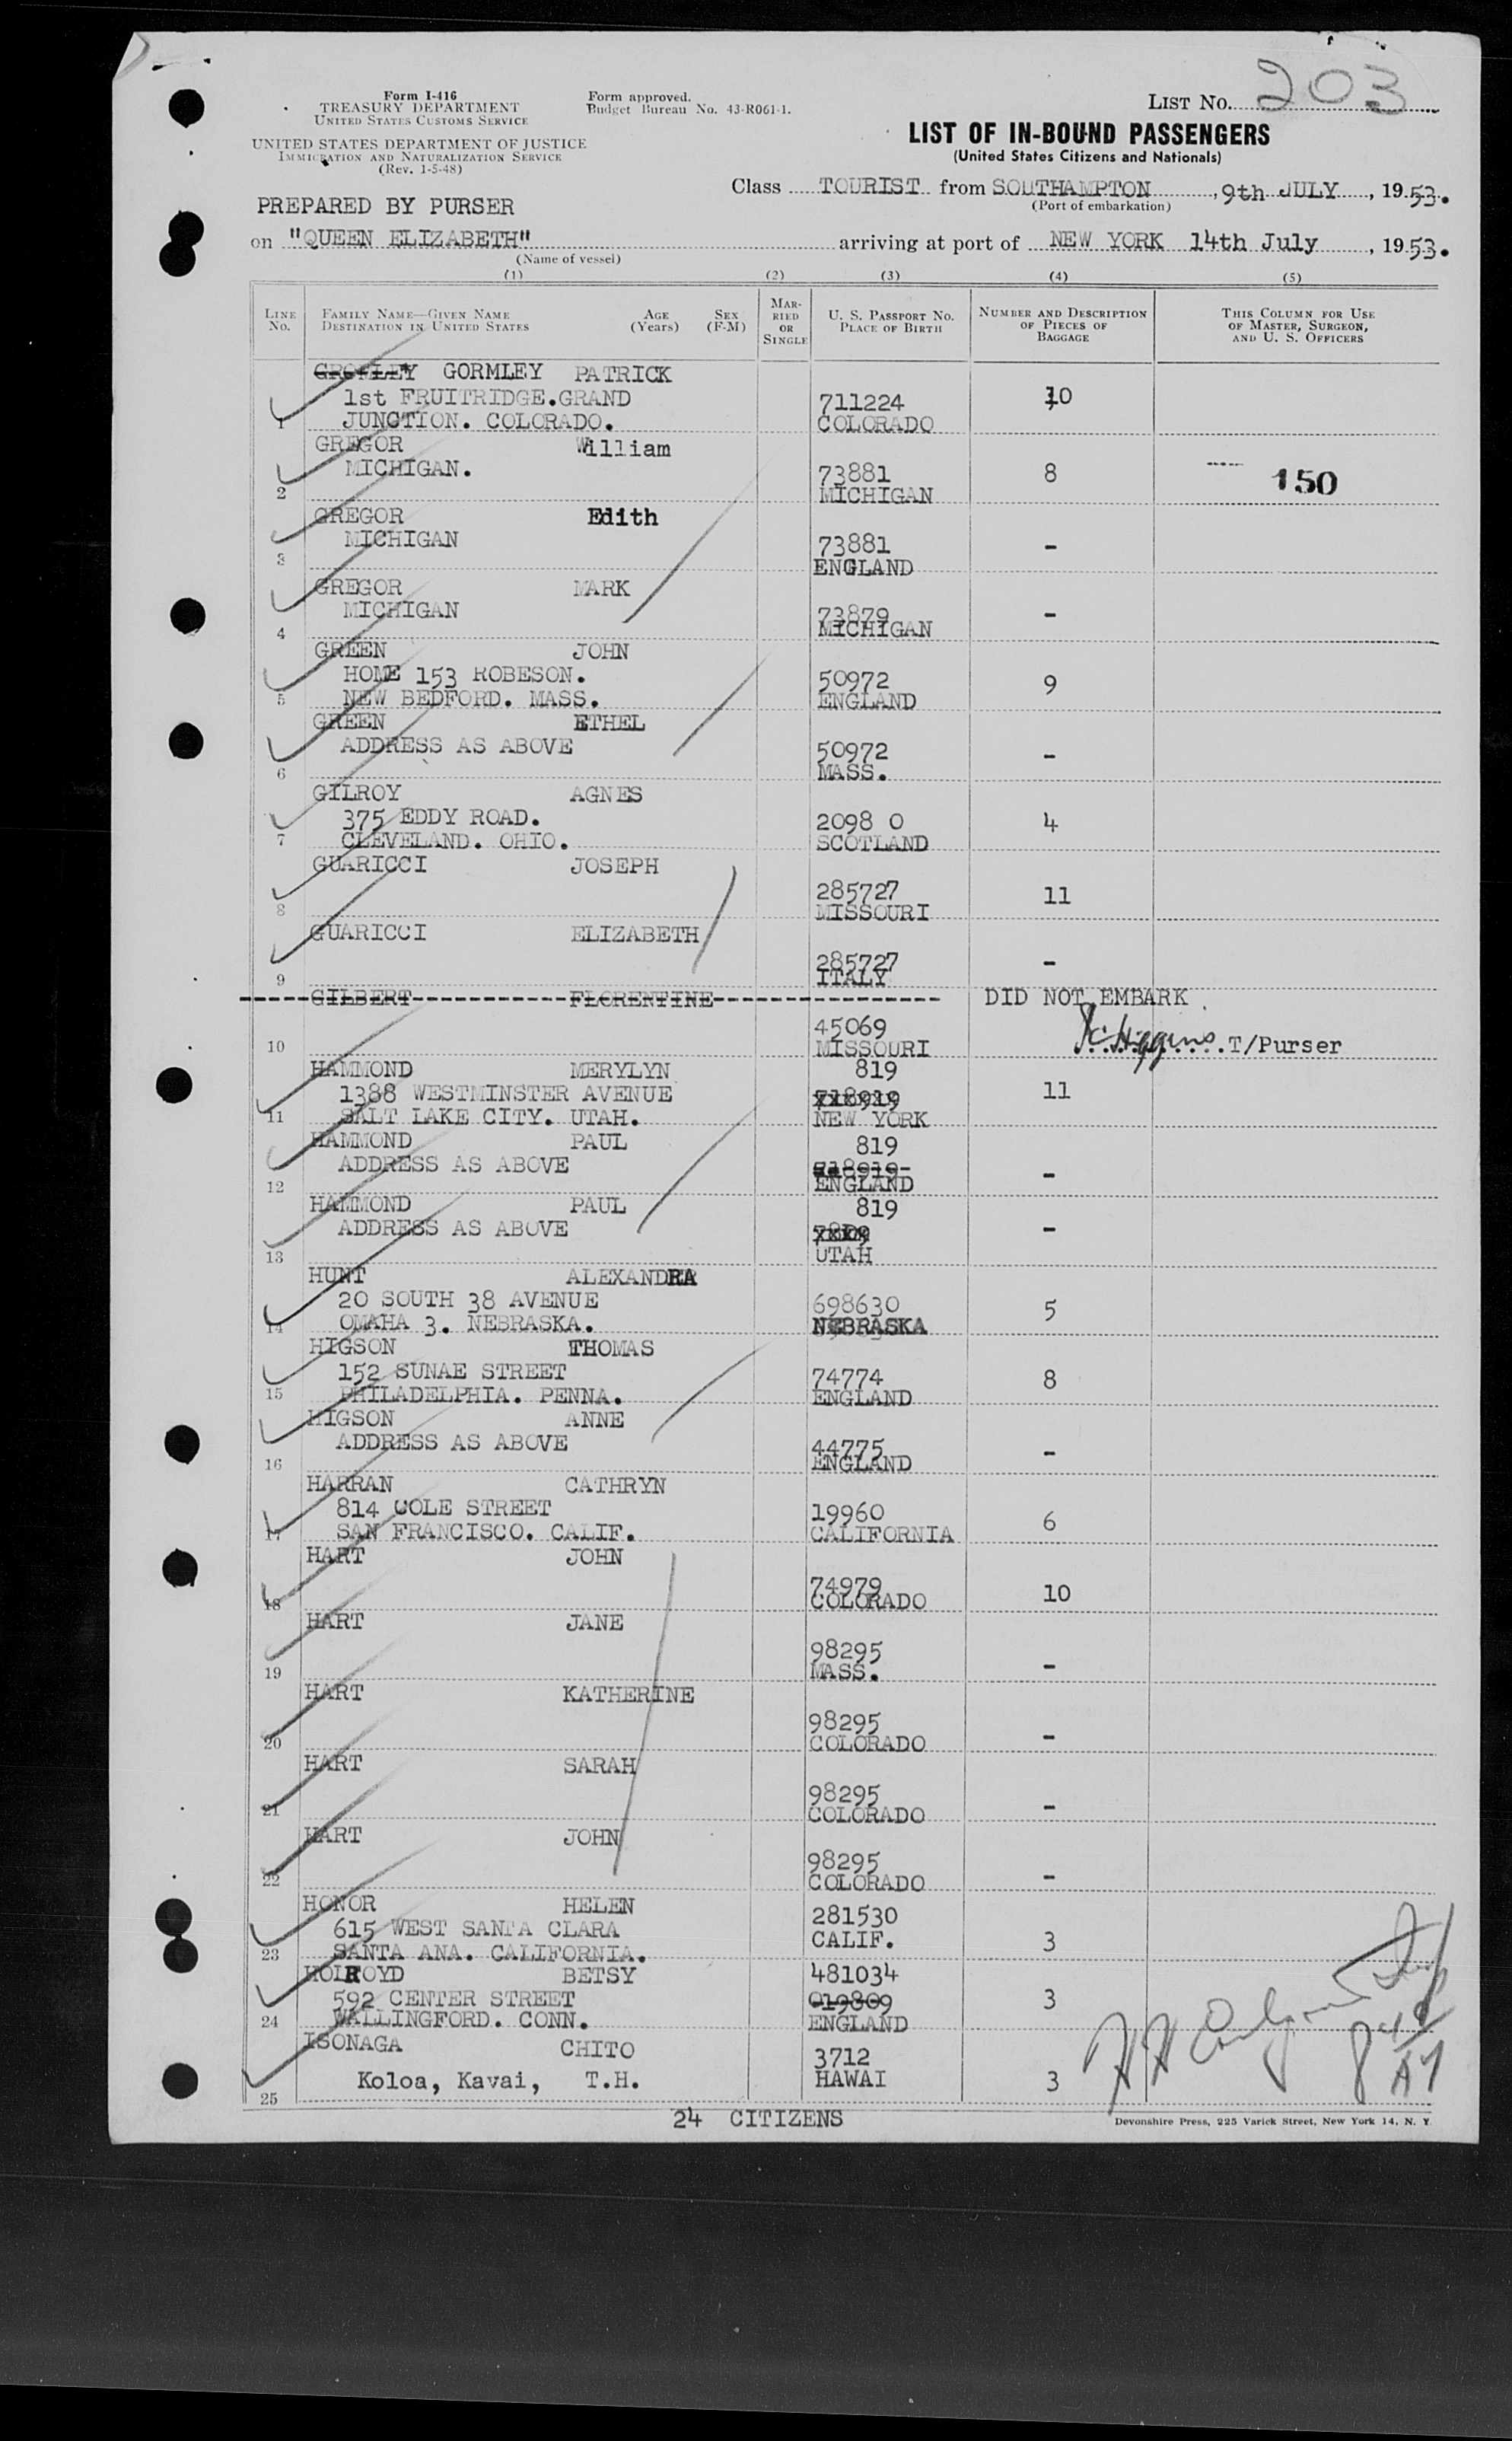 Form I-416
TREASURY DEPARTMENT
UNITED STATES CUSTOMS SERVICE
UNITED STATES DEPARTMENT OF JUSTICE
IMMIGRATION AND NATURALIZATION SERVICE
(Rev. 1-5-48)
Form approved.
Budget Bureau No. 43-R061-1.
LIST NO. 203
LIST OF IN-BOUND PASSENGERS
(United States Citizens and Nationals)
Class TOURIST from SOUTHAMPTON, 9th JULY, 1953.
(Port of embarkation)
PREPARED BY PURSER
on "QUEEN ELIZABETH" arriving at port of NEW YORK 14th July, 1953.
(Name of vessel)
(1) (2) (3) (4) (5)
LINE NO. FAMILY NAME—GIVEN NAME DESTINATION IN UNITED STATES AGE (Years) SEX (F-M) MARRIED OR SINGLE U. S. PASSPORT NO. PLACE OF BIRTH NUMBER AND DESCRIPTION OF PIECES OF BAGGAGE THIS COLUMN FOR USE OF MASTER, SURGEON, AND U. S. OFFICERS
GORMLEY PATRICK
1st FRUITRIDGE.GRAND 711224 10
1 JUNCTION. COLORADO. COLORADO
GREGOR William
MICHIGAN. 73881 8 150
2 MICHIGAN
GREGOR Edith
MICHIGAN 73881 -
3 ENGLAND
GREGOR MARK
MICHIGAN 73879 -
4 MICHIGAN
GREEN JOHN
HOME 153 ROBESON. 50972 9
5 NEW BEDFORD. MASS. ENGLAND
GREEN ETHEL
ADDRESS AS ABOVE 50972 -
6 MASS.
GILROY AGNES
375 EDDY ROAD. 2098 0 4
7 CLEVELAND. OHIO. SCOTLAND
GUARICCI JOSEPH
285727 11
8 MISSOURI
GUARICCI ELIZABETH
285727 -
9 ITALY
GILBERT FLORENTINE DID NOT EMBARK
45069
10 MISSOURI Higgins T/Purser
HAMMOND MERYLYN 819
1388 WESTMINSTER AVENUE 718919 11
11 SALT LAKE CITY. UTAH. NEW YORK
HAMMOND PAUL 819
ADDRESS AS ABOVE 718919 -
12 ENGLAND
HAMMOND PAUL 819
ADDRESS AS ABOVE -
13 UTAH
HUNT ALEXANDRA
20 SOUTH 38 AVENUE 698630 5
14 OMAHA 3. NEBRASKA. NEBRASKA
HIGSON THOMAS
152 SUNAE STREET 74774 8
15 PHILADELPHIA. PENNA. ENGLAND
HIGSON ANNE
ADDRESS AS ABOVE 44775 -
16 ENGLAND
HARRAN CATHRYN
814 COLE STREET 19960 6
17 SAN FRANCISCO. CALIF. CALIFORNIA
HART JOHN
74979 10
18 COLORADO
HART JANE
98295 -
19 MASS.
HART KATHERINE
98295 -
20 COLORADO
HART SARAH
98295 -
21 COLORADO
HART JOHN
98295 -
22 COLORADO
HONOR HELEN 281530
615 WEST SANTA CLARA CALIF. 3
23 SANTA ANA. CALIFORNIA.
HOLROYD BETSY 481034
592 CENTER STREET 019809 3
24 WALLINGFORD. CONN. ENGLAND
ISONAGA CHITO 3712
Koloa, Kavai, T.H. HAWAI 3
25
24 CITIZENS
Devonshire Press, 225 Varick Street, New York 14, N. Y.